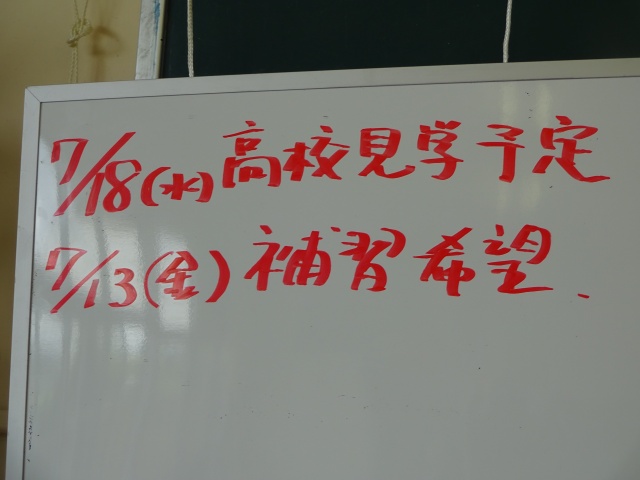 7/18(水)高校見学予定
7/13(金)補習希望.